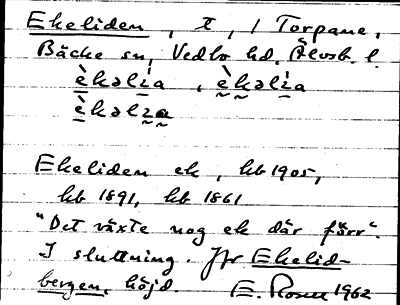 Ekeliden, t, 1 Torpane,
Bäcke sn, Vedbo hd, Älvsb. l.
èkəli̇a, èkəli̇a
èkəlıa
Ekeliden ek, kb 1905,
kb 1891, kb 1861
"Det växte nog ek där förr".
I sluttning. Jfr Ekelid-
bergen, höjd E. Rosell 1962